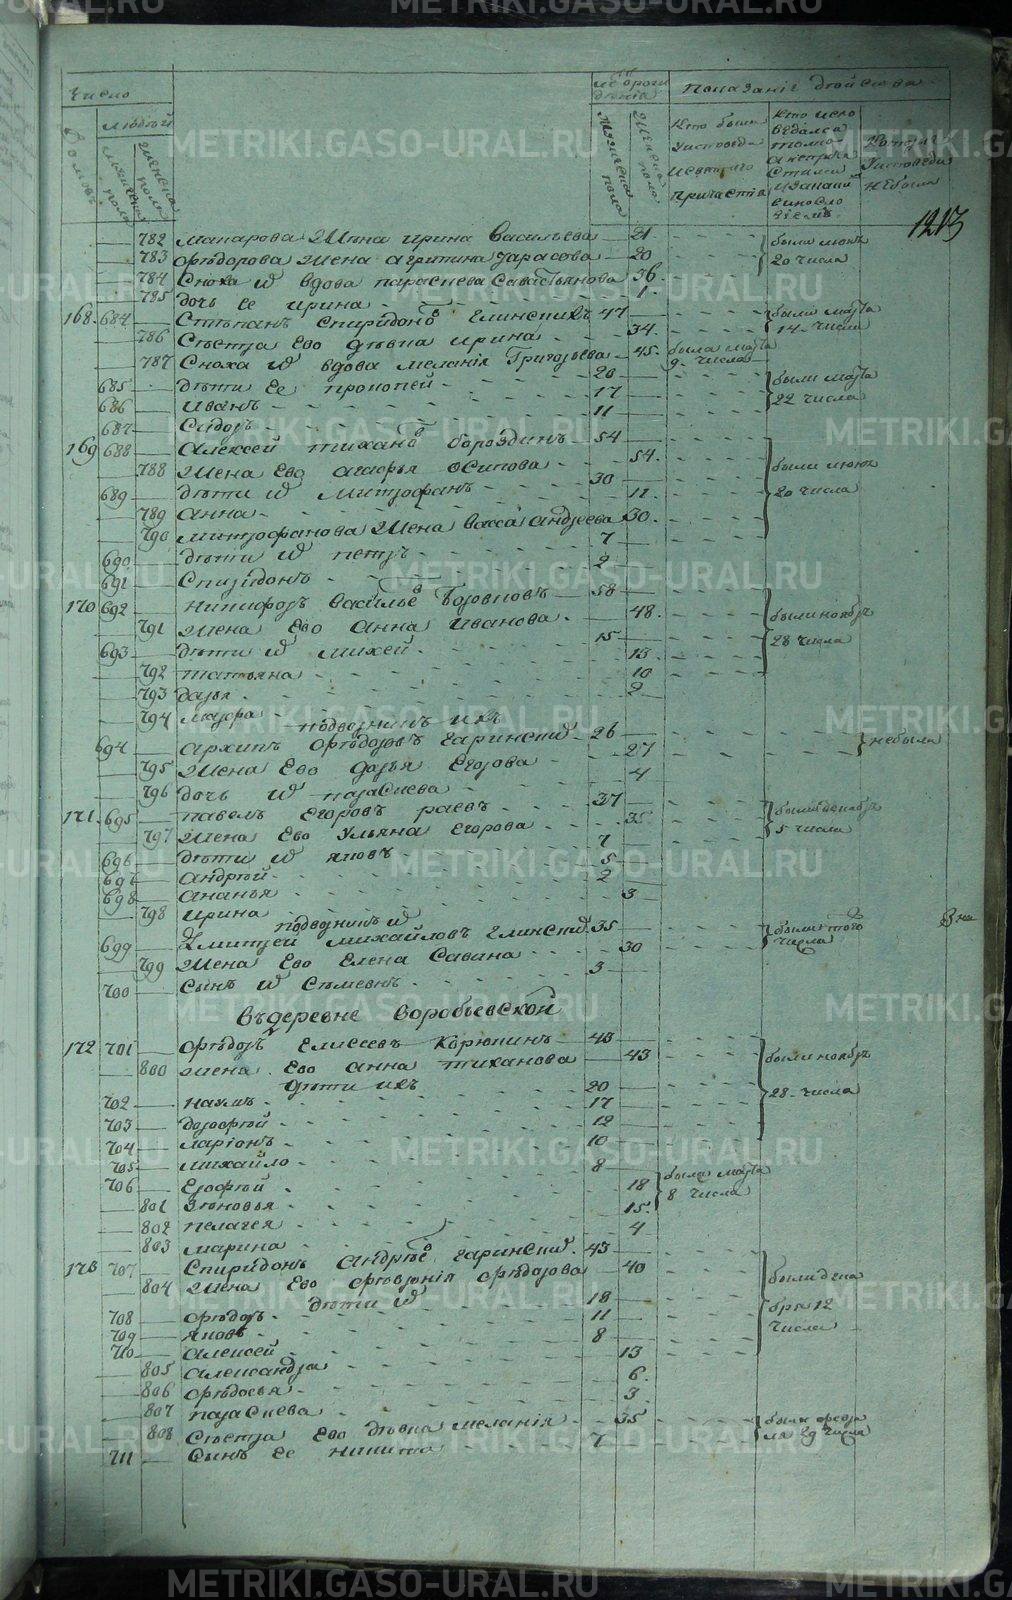 METRIKI.GASO-URAL.RU
Число
Людей
Домовъ
мужеска пола
женска пола
лѣто рож дѣнія
мужеска пола
женска пола
показаніе дѣйства
Кто были исповеди и святаго причастія
1213
782 макарова жена ирина васильева 21
783 ѳѣдорова жена агрипина тарасова 20
были июня 20 числа
784 сноха и вдова парасцева савастьянова 36
785 дочь ее ирина 1
168 684 Стѣпанъ спиридоновъ елинскихъ 47
были марта 14 числа
786 сѣстра ево дѣвка ирина 34
787 сноха и вдова меланія григорьева 45
была марта 9 числа
685 дѣти ее прокопей 20
были марта 22 числа
686 иванъ 17
687 сидоръ 11
169 688 Алексей тихановъ бороздинъ 54
788 жена ево агафья осипова 54
были июня 20 числа
689 дѣти и митрофанъ 30
789 анна 11
790 митрофанова жена васса андреева 30
690 дѣти и петръ 7
691 спиридонъ 2
170 692 никифоръ васильевъ 58
791 жена ево анна иванова 48
были ноября 28 числа
693 дѣти и михей 15
792 татьяна 13
793 дарья 10
794 марфа 2
подворникъ ихъ
694 архипъ ѳѣдоровъ гаринскій 26
небыли
795 жена ево дарья егорова 27
796 дочь и параскева 4
171 695 павелъ егоровъ раевъ 37
были декабря 5 числа
797 жена ево ульяна егорова 35
696 дѣти и яковъ 7
697 андрѣй 5
698 ананья 2
798 ирина 3
подворникъ и
699 дмитрей михайловъ глинскій 35
были того числа
799 жена ево елена савина 30
700 сынъ и сѣменъ 3
въ деревне воробьевской
172 701 ѳѣдоръ елисеевъ корюкинъ 43
800 жена ево анна тиханова 43
были ноября 28 числа
дѣти ихъ
702 наумъ 20
703 дорофѣй 17
704 ларіонъ 12
705 михайло 10
706 ерофѣй 8
была марта 8 числа
801 зѣновья 18
802 пелагея 15
803 марина 4
173 707 спиридонъ андрѣевъ гаринскій 43
804 жена ево ѳевронія ѳѣдорова 40
были дека бря 12 числа
дѣти и
708 ѳѣдоръ 18
709 яковъ 11
710 алексей 8
805 александра 13
806 ѳѣдосья 6
807 параскева 3
808 сѣстра ево дѣвка меланія 35
были февра ля 29 числа
711 сынъ ее никита 7